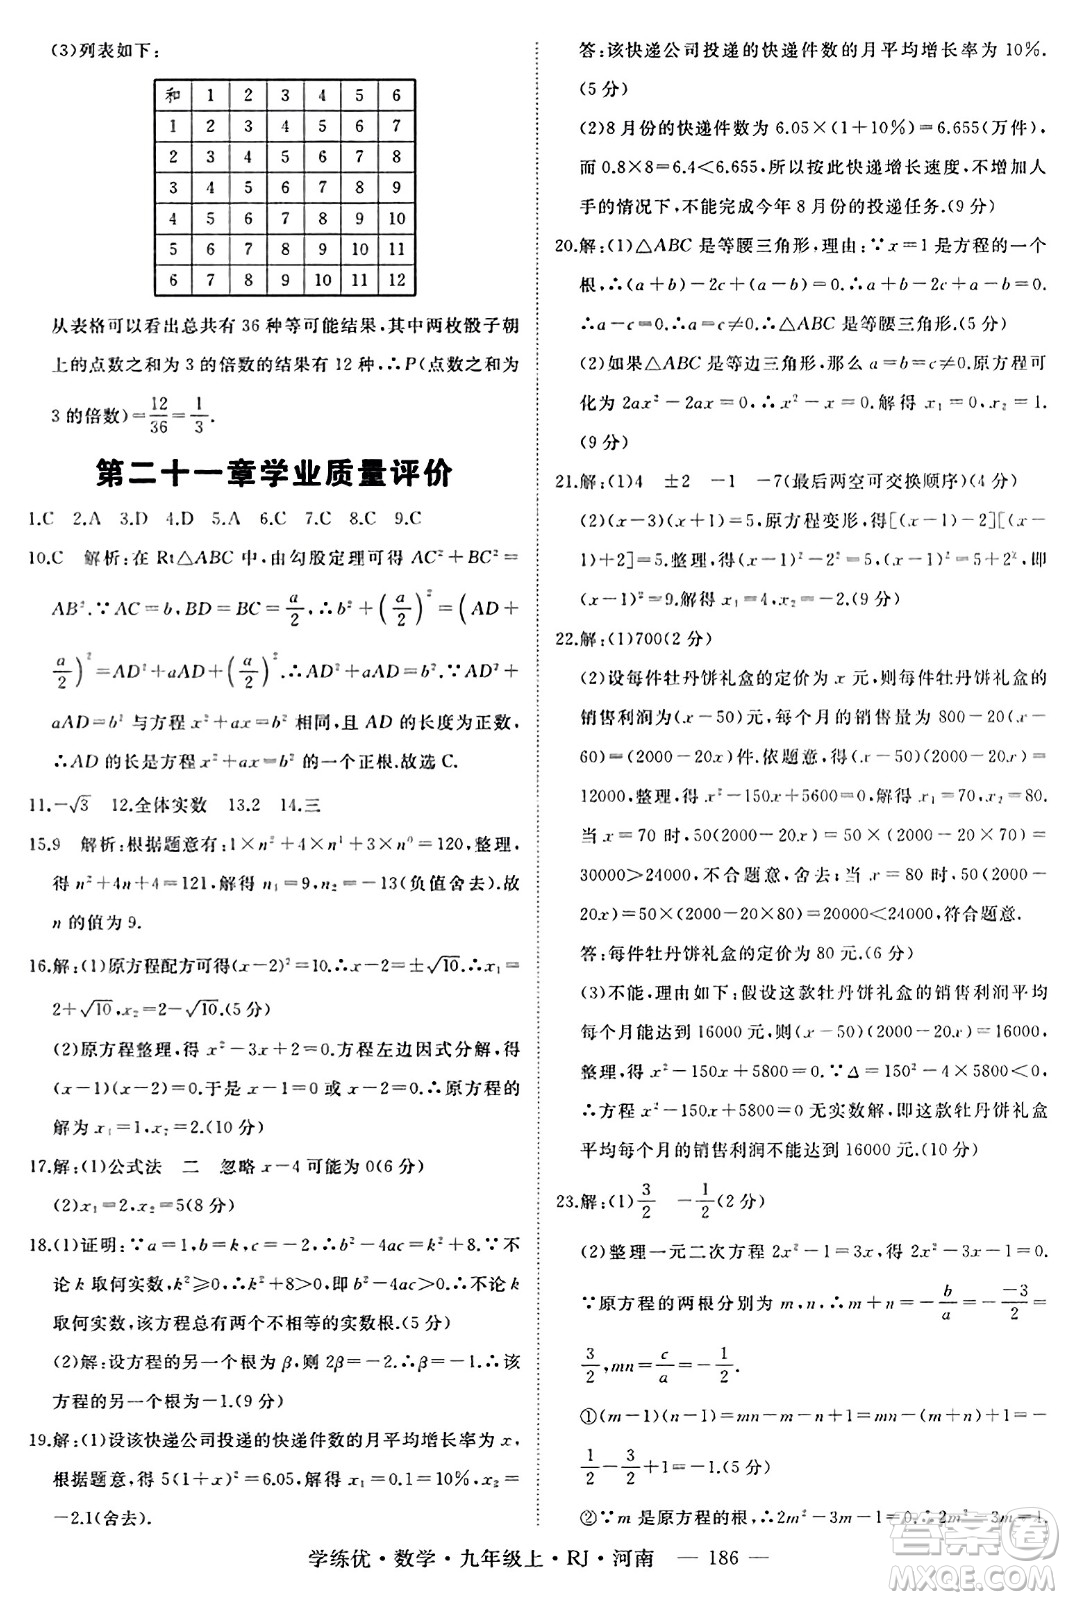 (3)列表如下:
和 1 2 3 4 5 6
1 2 3 4 5 6 7
2 3 4 5 6 7 8
3 4 5 6 7 8 9
4 5 6 7 8 9 10
5 6 7 8 9 10 11
6 7 8 9 10 11 12
从表格可以看出总共有 36 种等可能结果,其中两枚骰子朝
上的点数之和为 3 的倍数的结果有 12 种,∴P(点数之和为
3 的倍数)=12/36=1/3.
第二十一章学业质量评价
1.C 2.A 3.D 4.D 5.A 6.C 7.C 8.C 9.C
10.C 解析:在 Rt△ABC 中,由勾股定理可得 AC²+BC²=
AB².∵AC=b,BD=BC=a/2,∴b²+(a/2)²=(AD+
a/2)²=AD²+aAD+(a/2)².∴b²=AD²+aAD.∵AD²+
aAD=b² 与方程 x²+ax=b² 相同,且 AD 的长度为正数,
∴AD 的长是方程 x²+ax=b² 的一个正根.故选 C.
11.-√3 12.全体实数 13.2 14.三
15.9 解析:根据题意有:1×n²+4×n¹+3×n⁰=120,整理,
得 n²+4n+4=121,解得 n₁=9,n₂=-13(负值舍去).故
n 的值为 9.
16.解:(1)原方程配方可得(x-2)²=10.∴x=±√10,∴x₁=
2+√10,x₂=2-√10.(5 分)
(2)原方程整理,得 x²-3x+2=0.方程左边因式分解,得
(x-1)(x-2)=0.于是 x-1=0 或 x-2=0,∴原方程的
解为 x₁=1,x₂=2.(10 分)
17.解:(1)公式法 二 忽略 x-4 可能为 0(6 分)
(2)x₁=2,x₂=5(8 分)
18.(1)证明:∵a=1,b=k,c=-2,∴b²-4ac=k²+8.∵不
论 k 取何实数,k²≥0,∴k²+8>0,即 b²-4ac>0.∴不论 k
取何实数,该方程总有两个不相等的实数根.(5 分)
(2)解:设方程的另一个根为 β,则 2β=-2,∴β=-1,∴该
方程的另一个根为-1.(9 分)
19.解:(1)设该快递公司投递的快递件数的月平均增长率为 x,
根据题意,得 5(1+x)²=6.05,解得 x₁=0.1=10%,x₂=
-2.1(舍去).
答:该快递公司投递的快递件数的月平均增长率为 10%.
(5 分)
(2)8 月份的快递件数为 6.05×(1+10%)=6.655(万件),
而 0.8×8=6.4<6.655,所以按此快递增长速度,不增加人
手的情况下,不能完成今年 8 月份的投递任务.(9 分)
20.解:(1)△ABC 是等腰三角形,理由:∵x=1 是方程的一个
根,∴(a+b)-2c+(b-a)=0,∴a+b-2c+b-a=0,
∴a-c=0,∴a=c≠0,∴△ABC 是等腰三角形.(5 分)
(2)如果△ABC 是等边三角形,那么 a=b=c,原方程可
化为 2ax²-2ax=0,∴x²-x=0.解得 x₁=0,x₂=1.
(9 分)
21.解:(1)4 ±2 -1 -7(最后两空可交换顺序)(4 分)
(2)(x-3)(x+1)=5,原方程变形,得[(x-1)-2][(x-
1)+2]=5.整理,得(x-1)²-2²=5,(x-1)²=5+2²,
(x-1)²=9.解得 x₁=4,x₂=-2.(9 分)
22.解:(1)700(2 分)
(2)设每件牡丹饼礼盒的定价为 x 元,则每件牡丹饼礼盒的
销售利润为(x-50)元,每个月的销售量为 800-20(x-
60)=(2000-20x)件.依题意,得(x-50)(2000-20x)=
12000,整理,得 x²-150x+5600=0.解得 x₁=70,x₂=80.
当 x=70 时,50(2000-20x)=50×(2000-20×70)=
30000>24000,不合题意,舍去;当 x=80 时,50(2000-
20x)=50×(2000-20×80)=20000<24000,符合题意.
答:每件牡丹饼礼盒的定价为 80 元.(6 分)
(3)不能,理由如下:假设这款牡丹饼礼盒的销售利润平均
每个月能达到 16000 元,则(x-50)(2000-20x)=16000,
整理,得 x²-150x+5800=0.∵Δ=150²-4×5800<0,
∴方程 x²-150x+5800=0 无实数解,即这款牡丹饼礼盒
平均每个月的销售利润不能达到 16000 元.(10 分)
23.解:(1)3/2 -1/2(2 分)
(2)整理一元二次方程 2x²-1=3x,得 2x²-3x-1=0.
∵原方程的两根分别为 m,n,∴m+n=-b/a=-(-3)/2=
3/2,mn=c/a=-1/2.
①(m-1)(n-1)=mn-m-n+1=mn-(m+n)+1=
-1/2-3/2+1=-1.(5 分)
②∵m 是原方程的根,∴2m²-3m-1=0,∴2m²-3m=1.
学练优·数学·九年级上·RJ·河南 — 186 —
答案圈
MXQE.COM